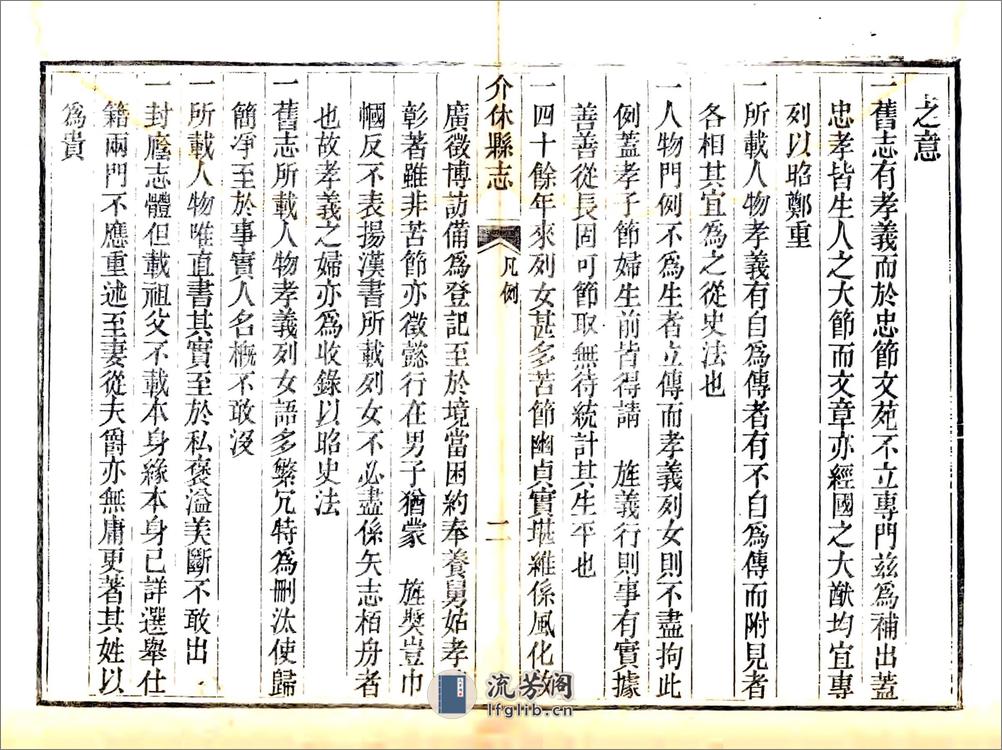 之意
一舊志有孝義而於忠節文苑不立專門茲為補出蓋
忠孝皆生人之大節而文章亦經國之大猷均宜專
列以昭鄭重
一所載人物孝義有自為傳者有不自為傳而附見者
各相其宜為之從史法也
一人物門例不為生者立傳而孝義列女則不盡拘此
例蓋孝子節婦生前皆得請 旌義行則事有實據
善善從長固可節取無待統計其生平也
一四十餘年來列女甚多苦節幽貞實堪維係風化故
介休縣志
凡例
二
廣徵博訪備為登記至於境當困約奉養舅姑孝
彰著雖非苦節亦徵懿行在男子猶蒙 旌獎豈巾
幗反不表揚漢書所載列女不必盡係矢志栢舟者
也故孝義之婦亦為收錄以昭史法
一舊志所載人物孝義列女語多繁冗特為刪汰使歸
簡凈至於事實人名概不敢沒
一所載人物唯直書其實至於私褒溢美斷不敢出
一封廕志體但載祖父不載本身緣本身已詳選舉仕
籍兩門不應重述至妻從夫爵亦無庸更著其姓以
為貴
流芳閣
lfglib.cn